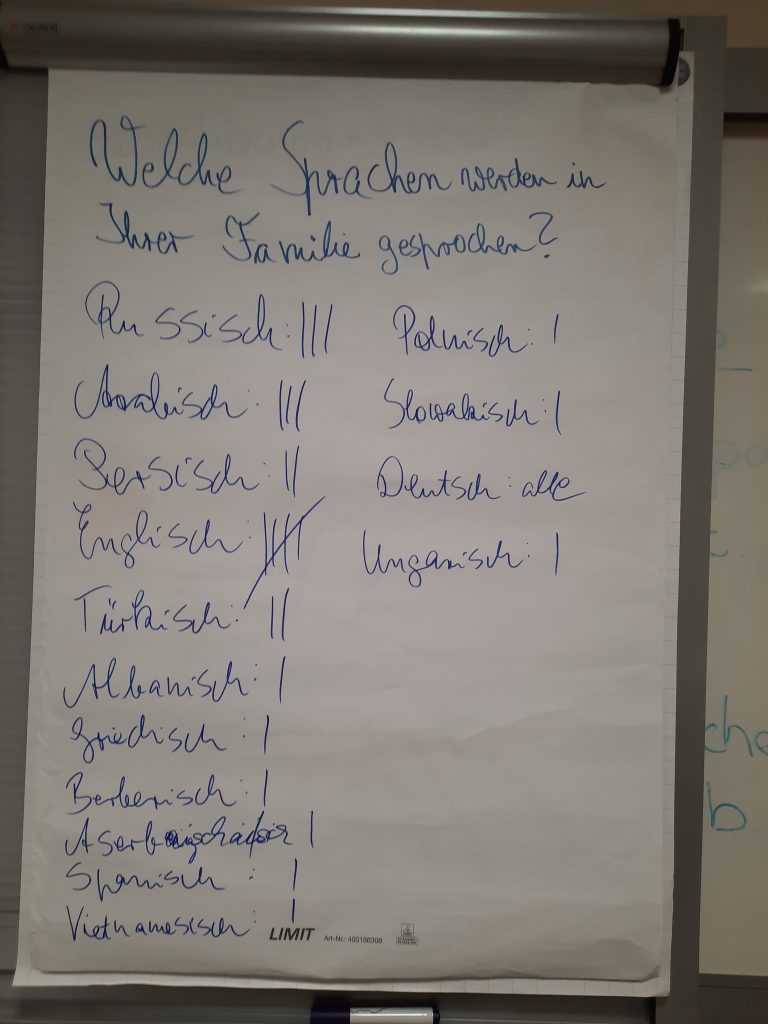 Welche Sprachen werden in
Ihrer Familie gesprochen?
Russisch: |||
Arabisch: |||
Persisch: ||
Englisch: ||||
Türkisch: ||
Albanisch: |
Griechisch: |
Berberisch: |
|
Spanisch: |
Vietnamesisch: |
Polnisch: |
Slowakisch: |
Deutsch: alle
Ungarisch: |
LIMIT Art-Nr.: 400186308
b